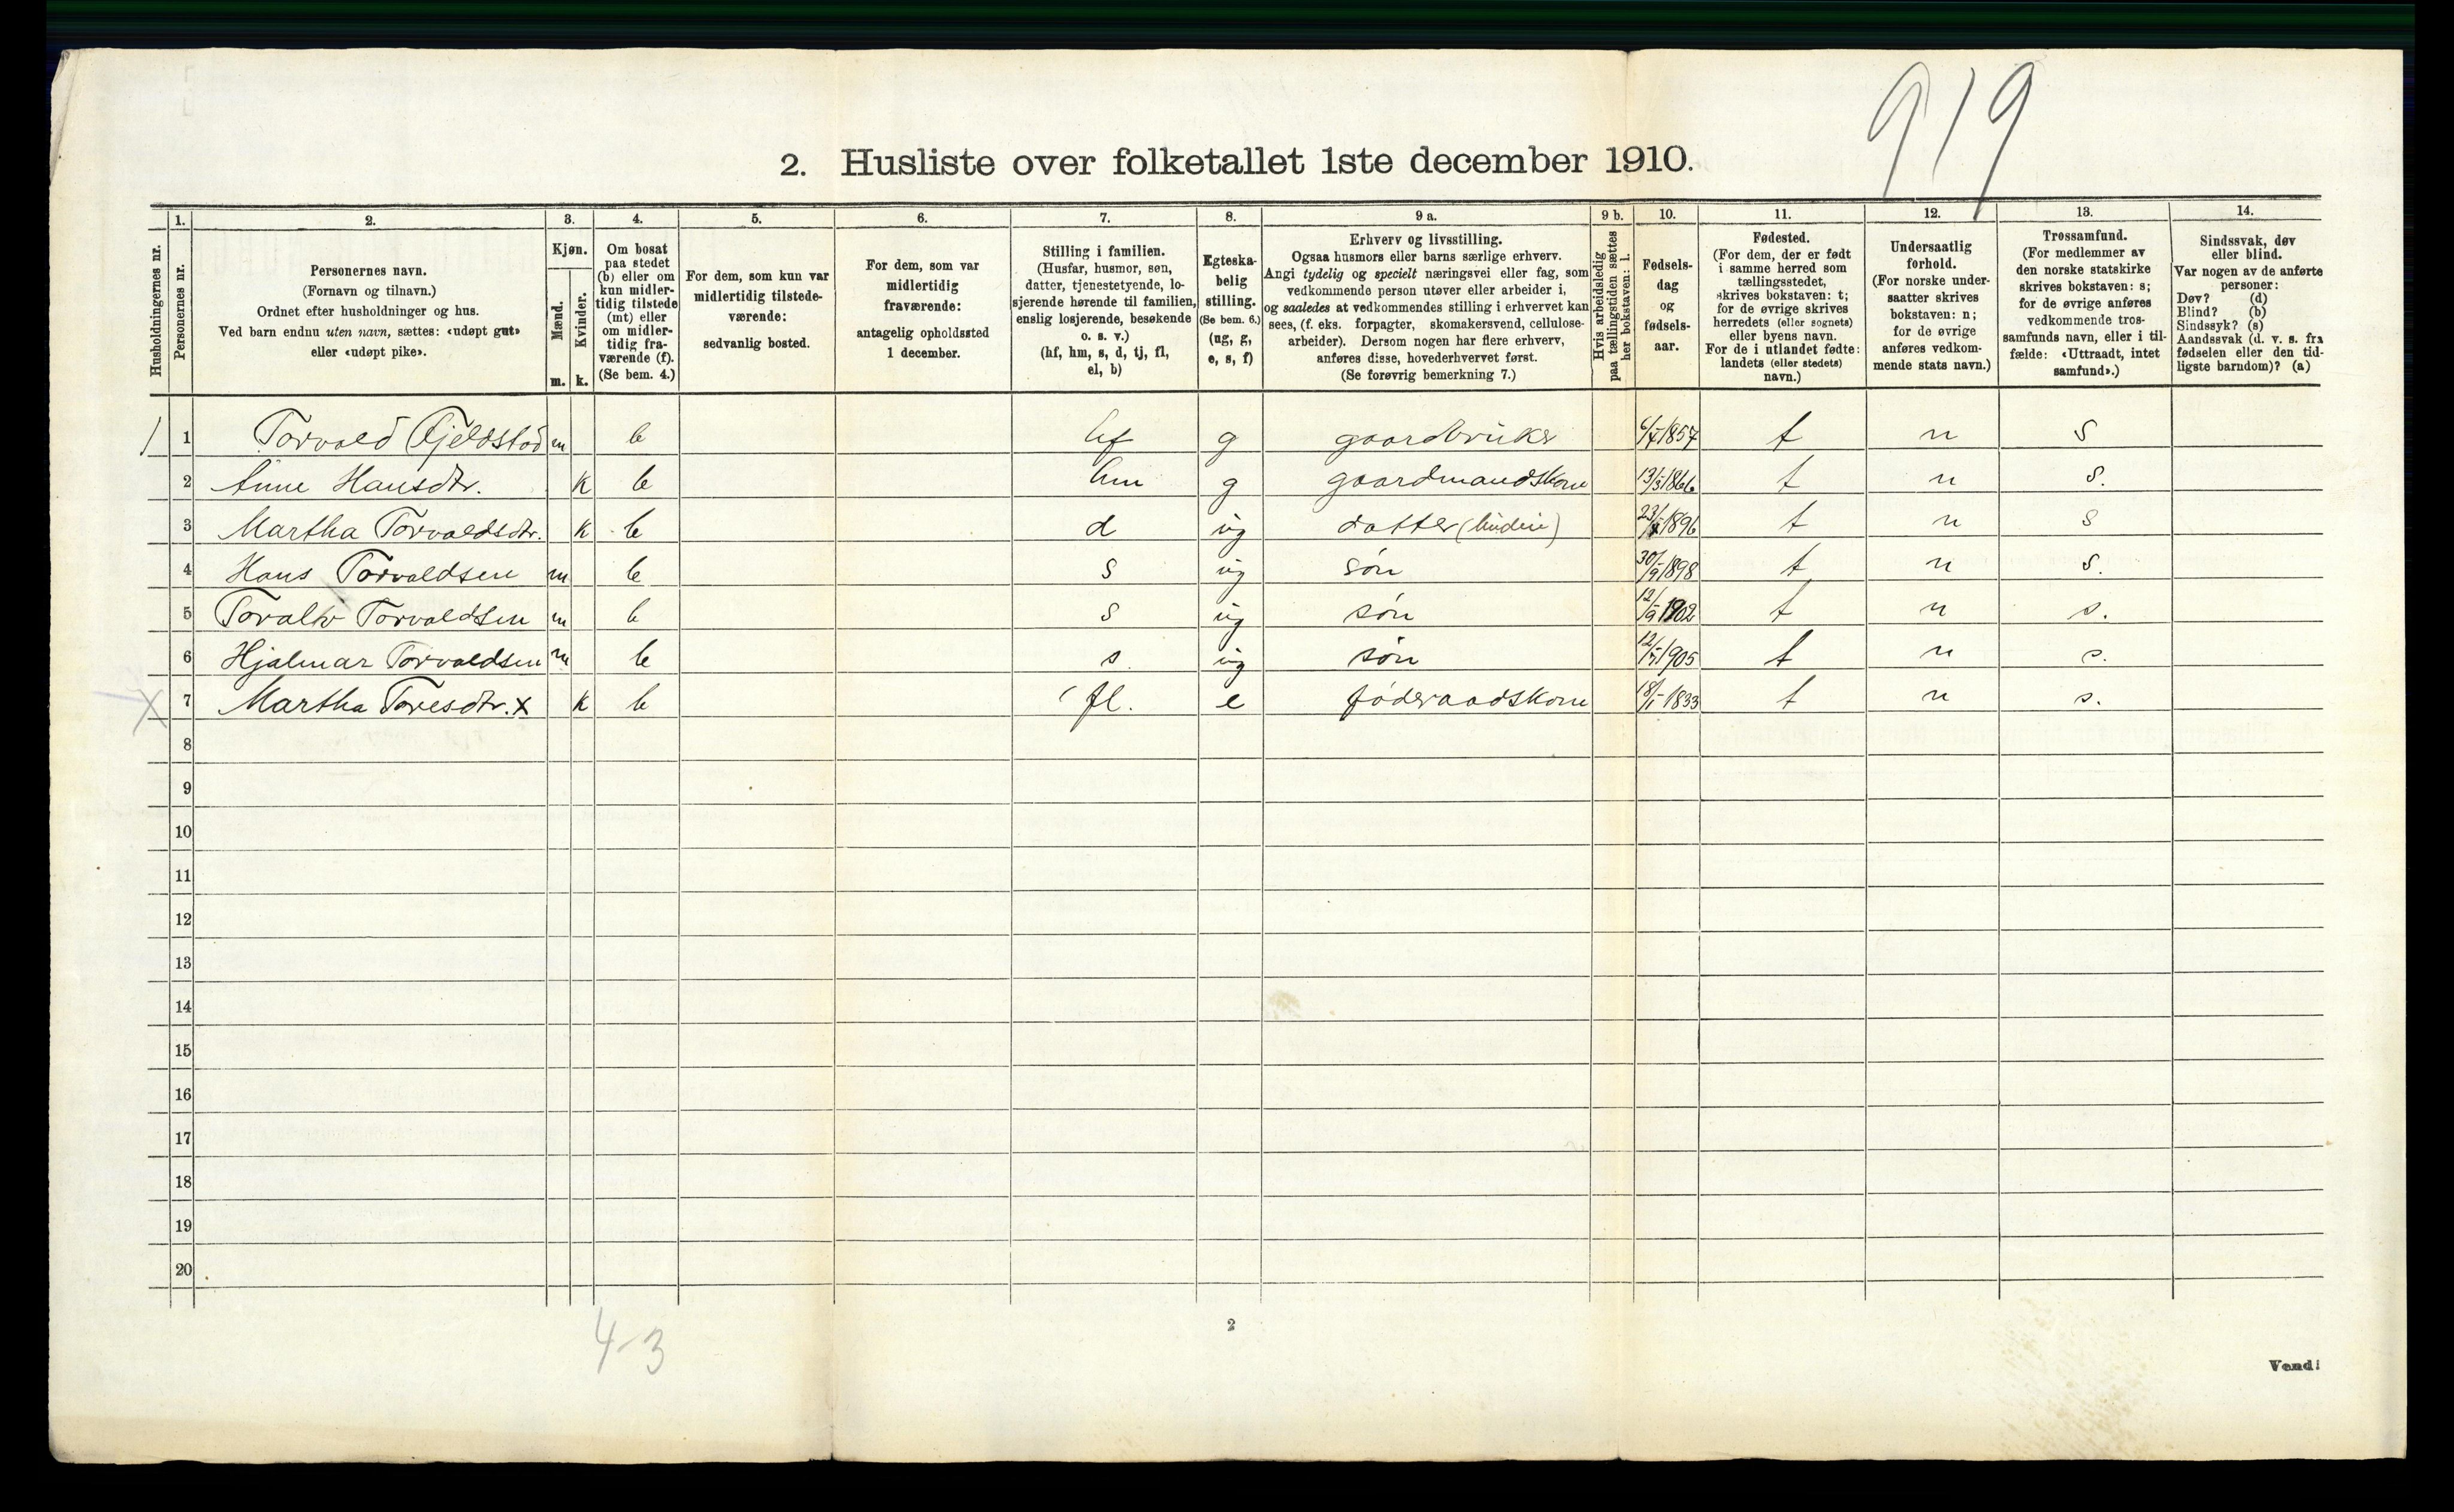 919
2. Husliste over folketallet 1ste december 1910.
Husholdningernes nr.
1.
Personernes nr.
2.
Personernes navn.
(Fornavn og tilnavn.)
Ordnet efter husholdninger og hus.
Ved barn endnu uten navn, sættes: «udøpt gut»
eller «udøpt pike».
3.
Kjøn.
Mænd.
m.
Kvinder.
k.
4.
Om bosat
paa stedet
(b) eller om
kun midler-
tidig tilstede
(mt) eller
om midler-
tidig fra-
værende (f).
(Se bem. 4.)
5.
For dem, som kun var
midlertidig tilstede-
værende:
sedvanlig bosted.
6.
For dem, som var
midlertidig
fraværende:
antagelig opholdssted
1 december.
7.
Stilling i familien.
(Husfar, husmor, søn,
datter, tjenestetyende, lo-
sjerende hørende til familien,
enslig losjerende, besøkende
o. s. v.)
(hf, hm, s, d, tj, fl,
el, b)
8.
Egteska-
belig
stilling.
(Se bem. 6.)
(ug, g,
e, s, f)
9 a.
Erhverv og livsstilling.
Ogsaa husmors eller barns særlige erhverv.
Angi tydelig og specielt næringsvei eller fag, som
vedkommende person utøver eller arbeider i,
og saaledes at vedkommendes stilling i erhvervet kan
sees, (f. eks. forpagter, skomakersvend, cellulose-
arbeider). Dersom nogen har flere erhverv,
anføres disse, hovederhvervet først.
(Se forøvrig bemerkning 7.)
9 b.
Hvis arbeidsledig
paa tællingstiden sættes
her bokstaven: l.
10.
Fødsels-
dag
og
fødsels-
aar.
11.
Fødested.
(For dem, der er født
i samme herred som
tællingsstedet,
skrives bokstaven: t;
for de øvrige skrives
herredets (eller sognets)
eller byens navn.
For de i utlandet fødte:
landets (eller stedets)
navn.)
12.
Undersaatlig
forhold.
(For norske under-
saatter skrives
bokstaven: n;
for de øvrige
anføres vedkom-
mende stats navn.)
13.
Trossamfund.
(For medlemmer av
den norske statskirke
skrives bokstaven: s;
for de øvrige anføres
vedkommende tros-
samfunds navn, eller i til-
fælde: «Uttraadt, intet
samfund».)
14.
Sindssvak, døv
eller blind.
Var nogen av de anførte
personer:
Døv? (d)
Blind? (b)
Sindssyk? (s)
Aandssvak (d. v. s. fra
fødselen eller den tid-
ligste barndom)? (a)
1 1 Torvald Fjeldstad m b hf g gaardbruker 1857 t n s
2 Anne Hansdtr. k b hm g gaardmandskone 1866 t n s.
3 Martha Torvaldsdtr. k b d ug datter 1896 t n s
4 Hans Torvaldsen m b s ug søn 30/9 1898 t n s.
5 Toralv Torvaldsen m b s ug søn 12/9 1902 t n s.
6 Hjalmar Torvaldsen m b s ug søn 1905 t n s.
X 7 Martha Toresdtr. x k b fl. e føderaadskone 18/1 1833 t n s.
8
9
10
11
12
13
14
15
16
17
18
19
20
4-3
2
Vend!